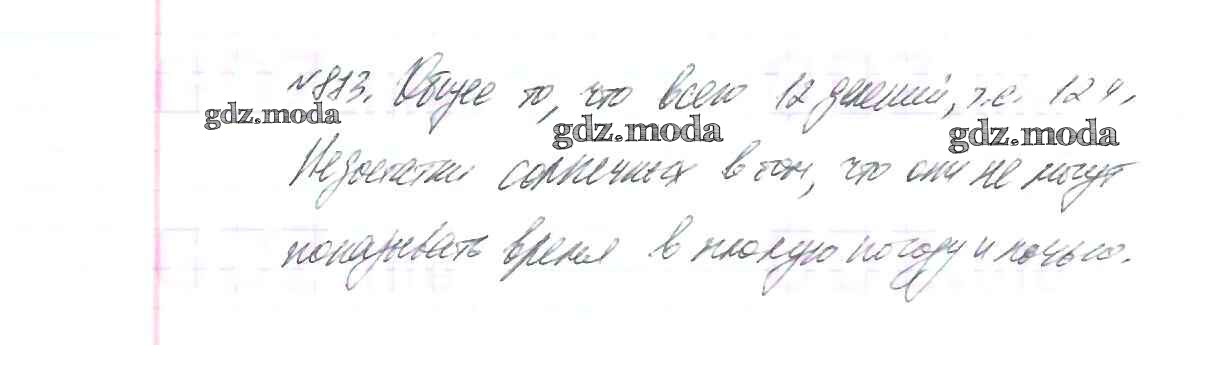 № 813. Общее то, что всего 12 делений, т.е. 12 ч.
gdz.moda gdz.moda gdz.moda
Недостатки солнечных в том, что они не могут
показывать время в плохую погоду и ночью.